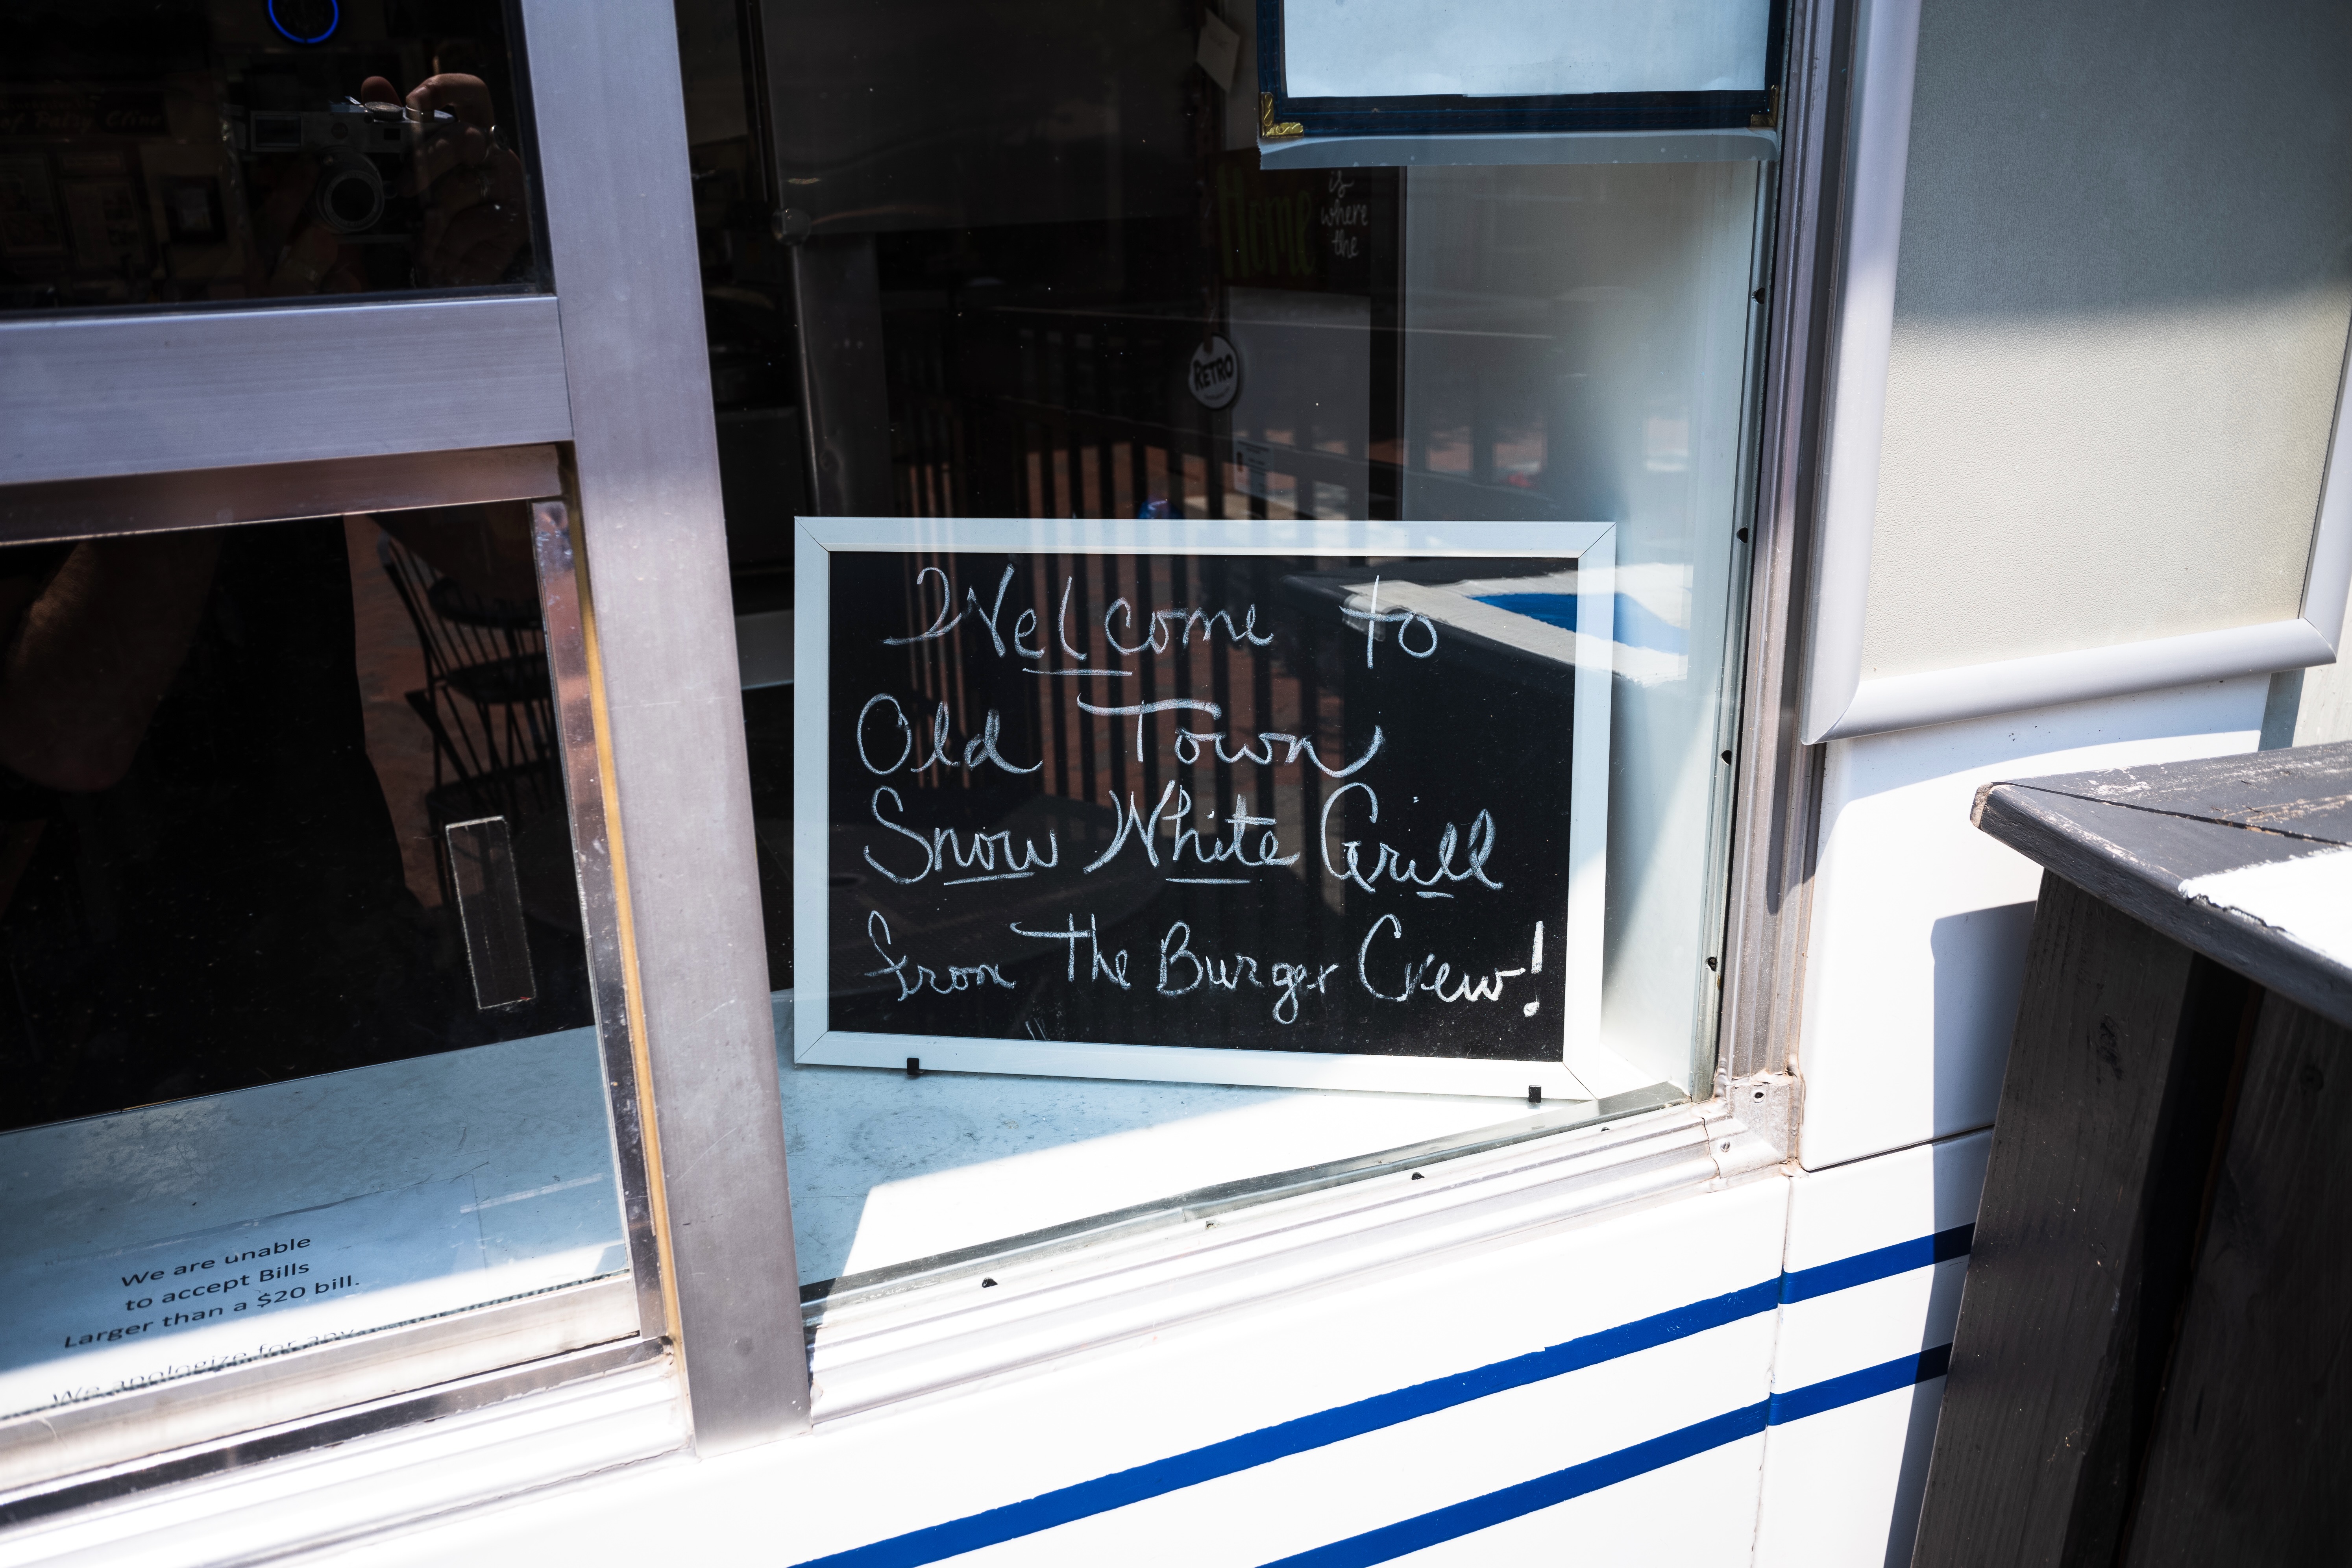 of Patsy Cline
Home
is
where
the
RETRO
Welcome to
Old Town
Snow White Grill
from The Burger Crew!
We are unable
to accept Bills
Larger than a $20 bill.
We apologize for any